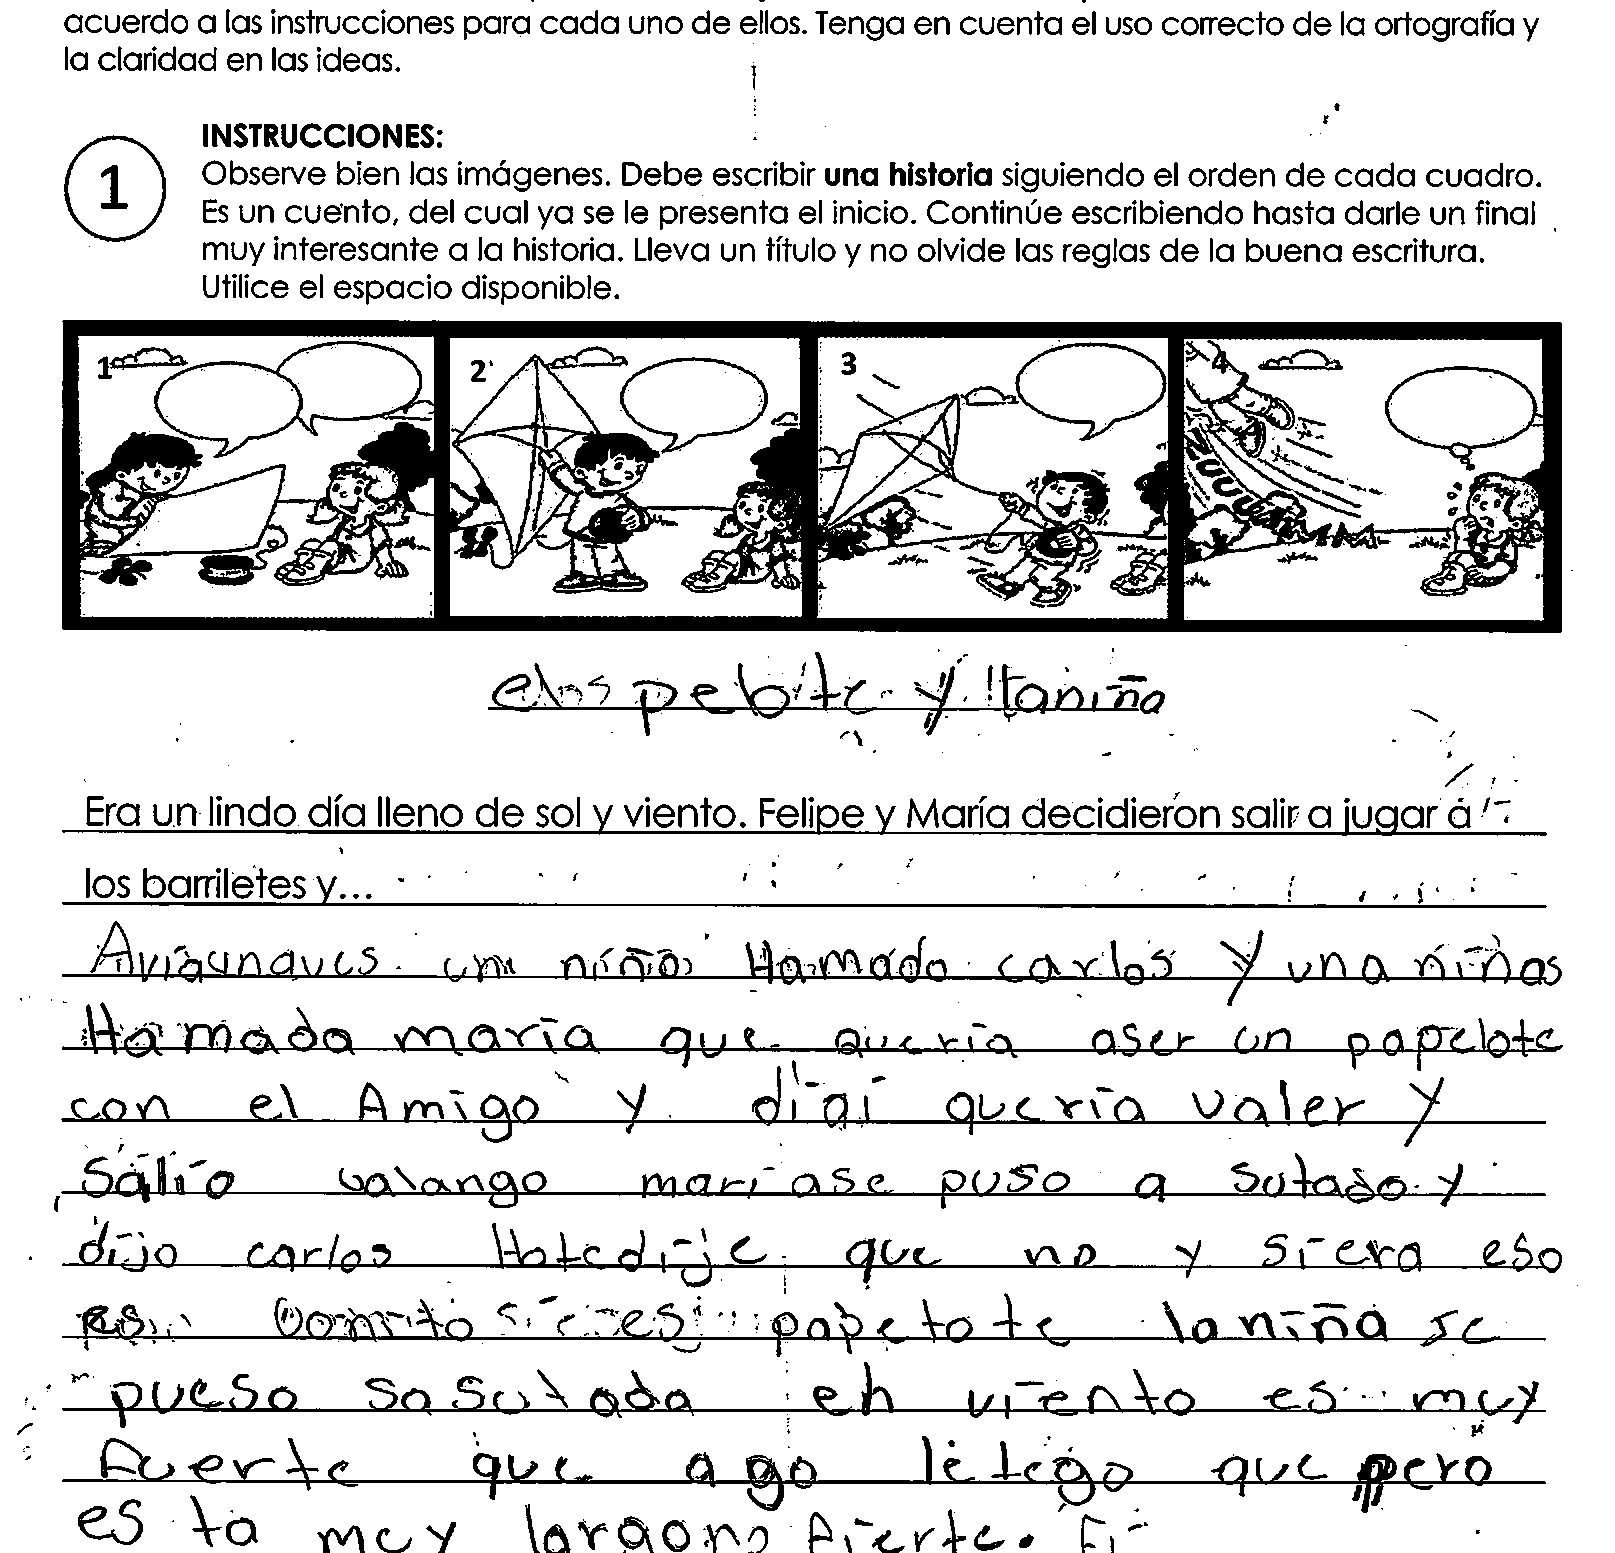 acuerdo a las instrucciones para cada uno de ellos. Tenga en cuenta el uso correcto de la ortografía y
la claridad en las ideas.
1
INSTRUCCIONES:
Observe bien las imágenes. Debe escribir una historia siguiendo el orden de cada cuadro.
Es un cuento, del cual ya se le presenta el inicio. Continúe escribiendo hasta darle un final
muy interesante a la historia. Lleva un título y no olvide las reglas de la buena escritura.
Utilice el espacio disponible.
1 2 3 4
y
Era un lindo día lleno de sol y viento. Felipe y María decidieron salir a jugar a
los barriletes y...
Aviaunaves un niño Hamado carlos y una niñas
Hamada maría que quería aser un papelote
con el Amigo y diai quería valer y
Salio valango maríase puso a sutado y
dijo carlos que no y siera eso
es papetote laniña se
pueso sasutada eh viento es muy
fuerte que ago letego que pero
es ta muy fierte. Fi